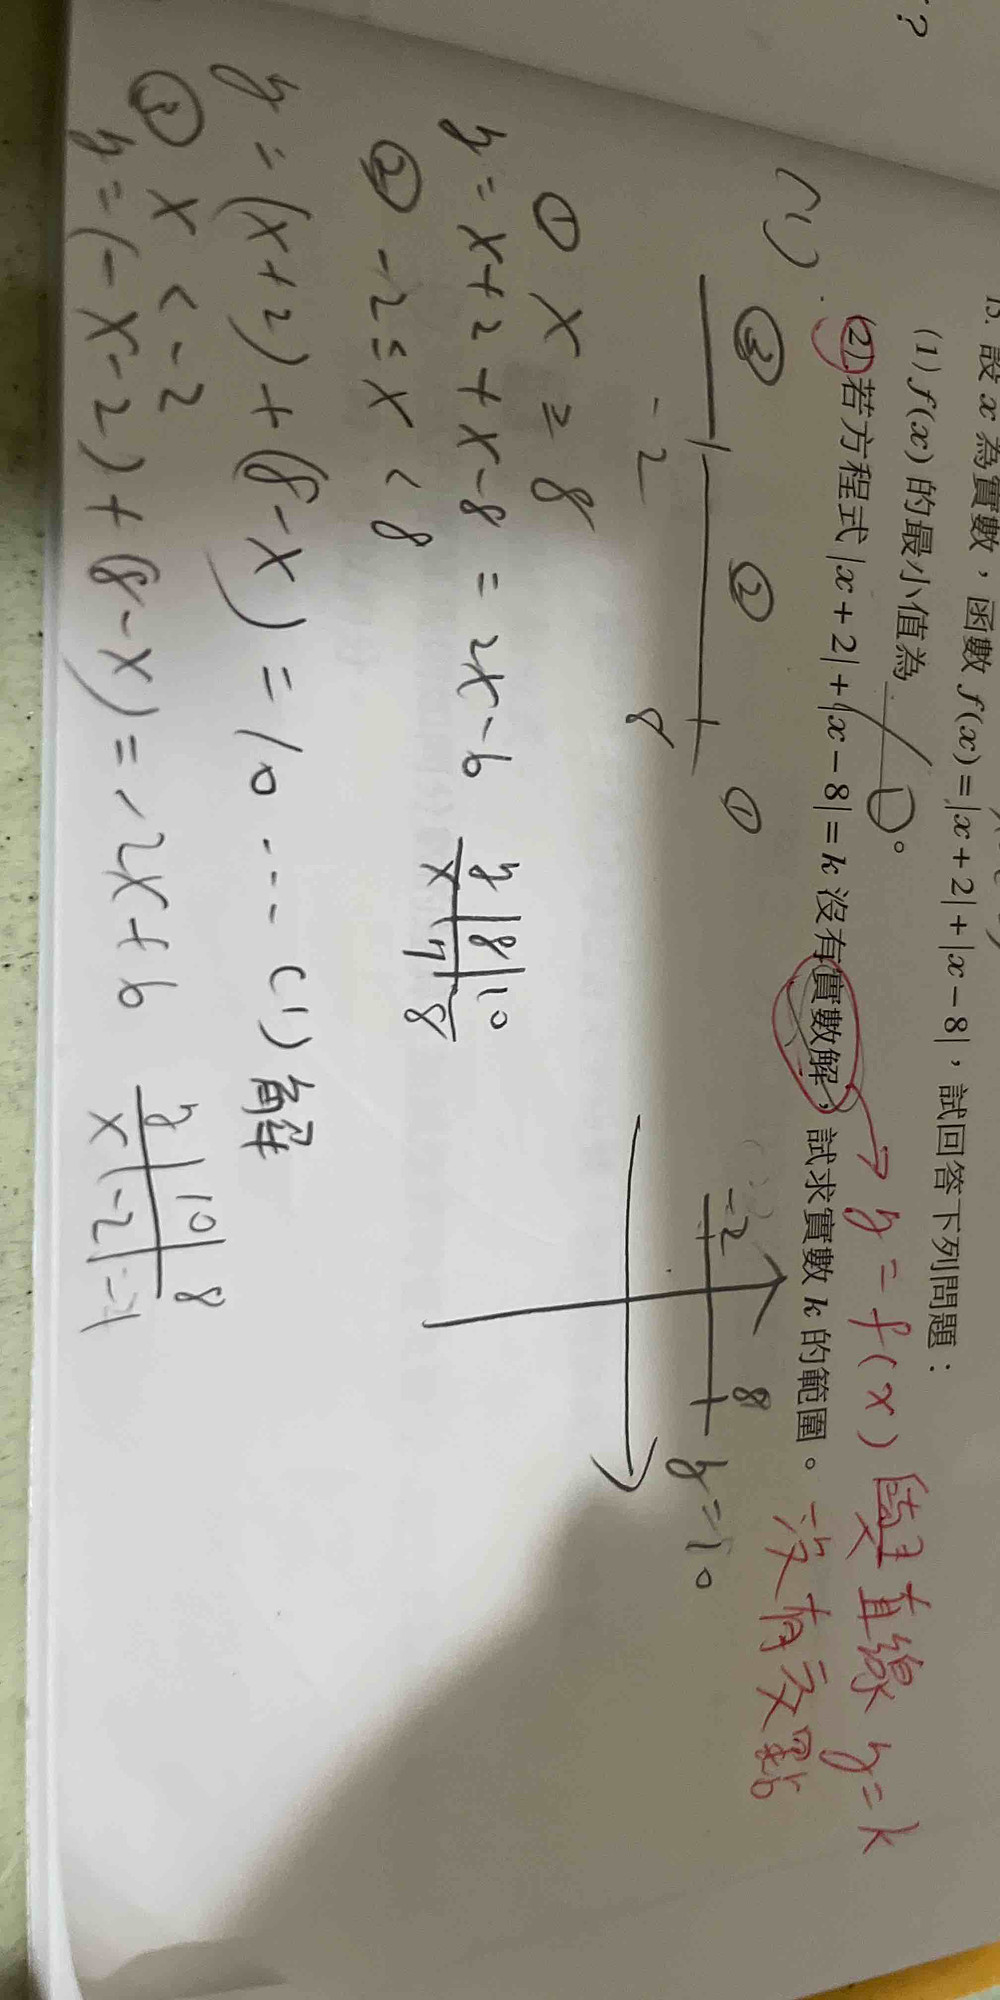 ?
15. 設 x 為實數，函數 f(x)=|x+2|+|x-8|，試回答下列問題：
(1) f(x) 的最小值為 10 。
(2) 若方程式 |x+2|+|x-8|=k 沒有實數解，試求實數 k 的範圍。
→ y=f(x) 與直線 y=k
沒有交點
(1)
③ ② ①
-2 8
-2 8
y=10
① x≥8
y=x+2+x-8=2x-6
y 8 10
x 7 8
② -2≤x<8
y=(x+2)+(8-x)=10...(1)解
③ x<-2
y=(-x-2)+(8-x)=-2x+6
y 10 8
x -2 -1